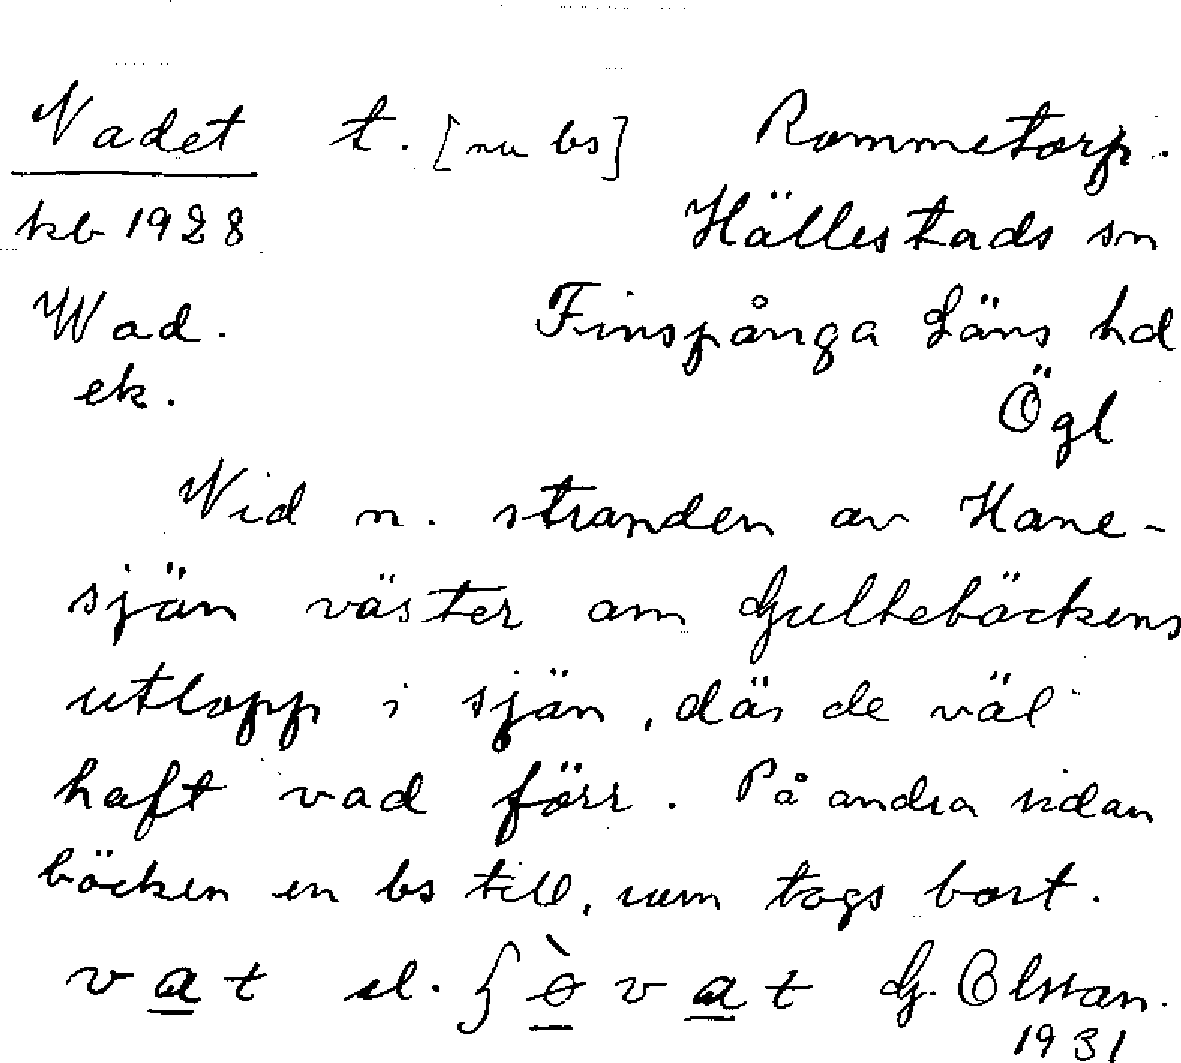 Vadet t. [nu bs] Rommetorp.
kb 1928 Hällestads sn
Wad. Finspånga Läns hd
ek. Ögl
Vid n. stranden av Hane-
sjön väster om Gultebäckens
utlopp i sjön, där de väl
haft vad förr. På andra sidan
bäcken en bs till, som togs bort.
vat el. vat G. Olsson.
1931